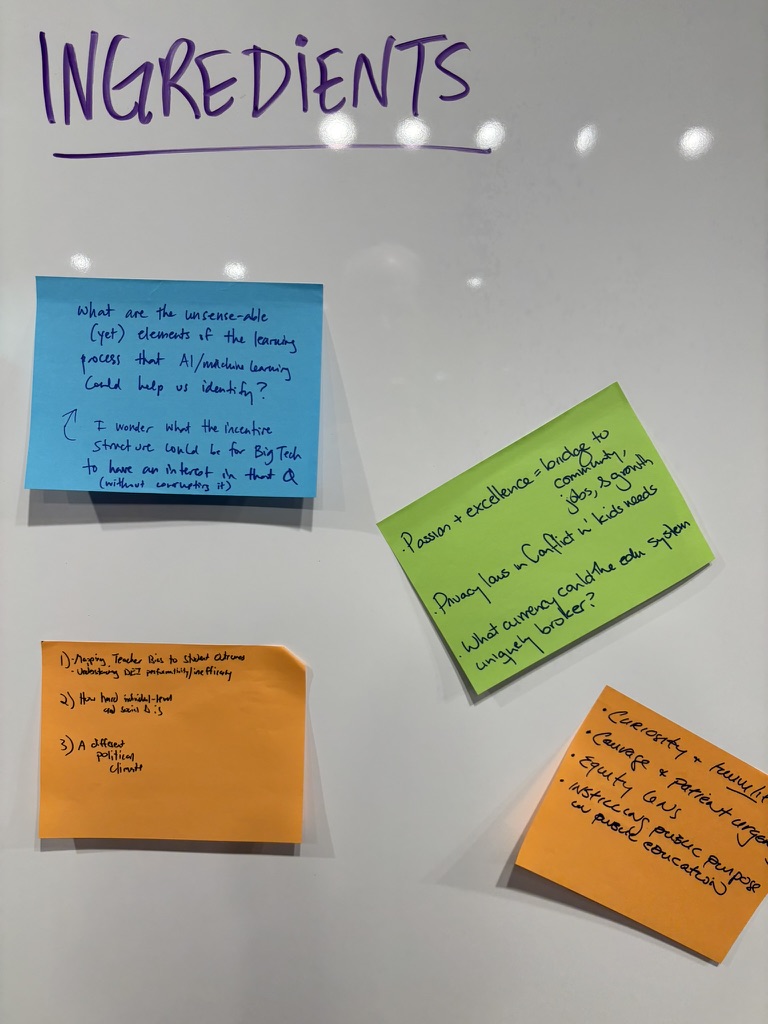 INGREDIENTS
What are the unsense-able
(yet) elements of the learning
process that AI/machine learning
could help us identify?
I wonder what the incentive
structure could be for Big Tech
to have an interest in that Q
(without corrupting it)
· Passion + excellence = bridge to
community,
jobs, & growth
· Privacy laws in conflict w/ kids needs
· What currency could the edu system
uniquely broker?
1) - Mapping Teacher Bias to Student Outcomes
- Understanding DEI performativity/inefficacy
2) How hard individual-level
and social Δ is
3) A different
political
climate
· Curiosity + humili
· Courage + patient urgen
· Equity lens
· Instilling public purpose
in public education